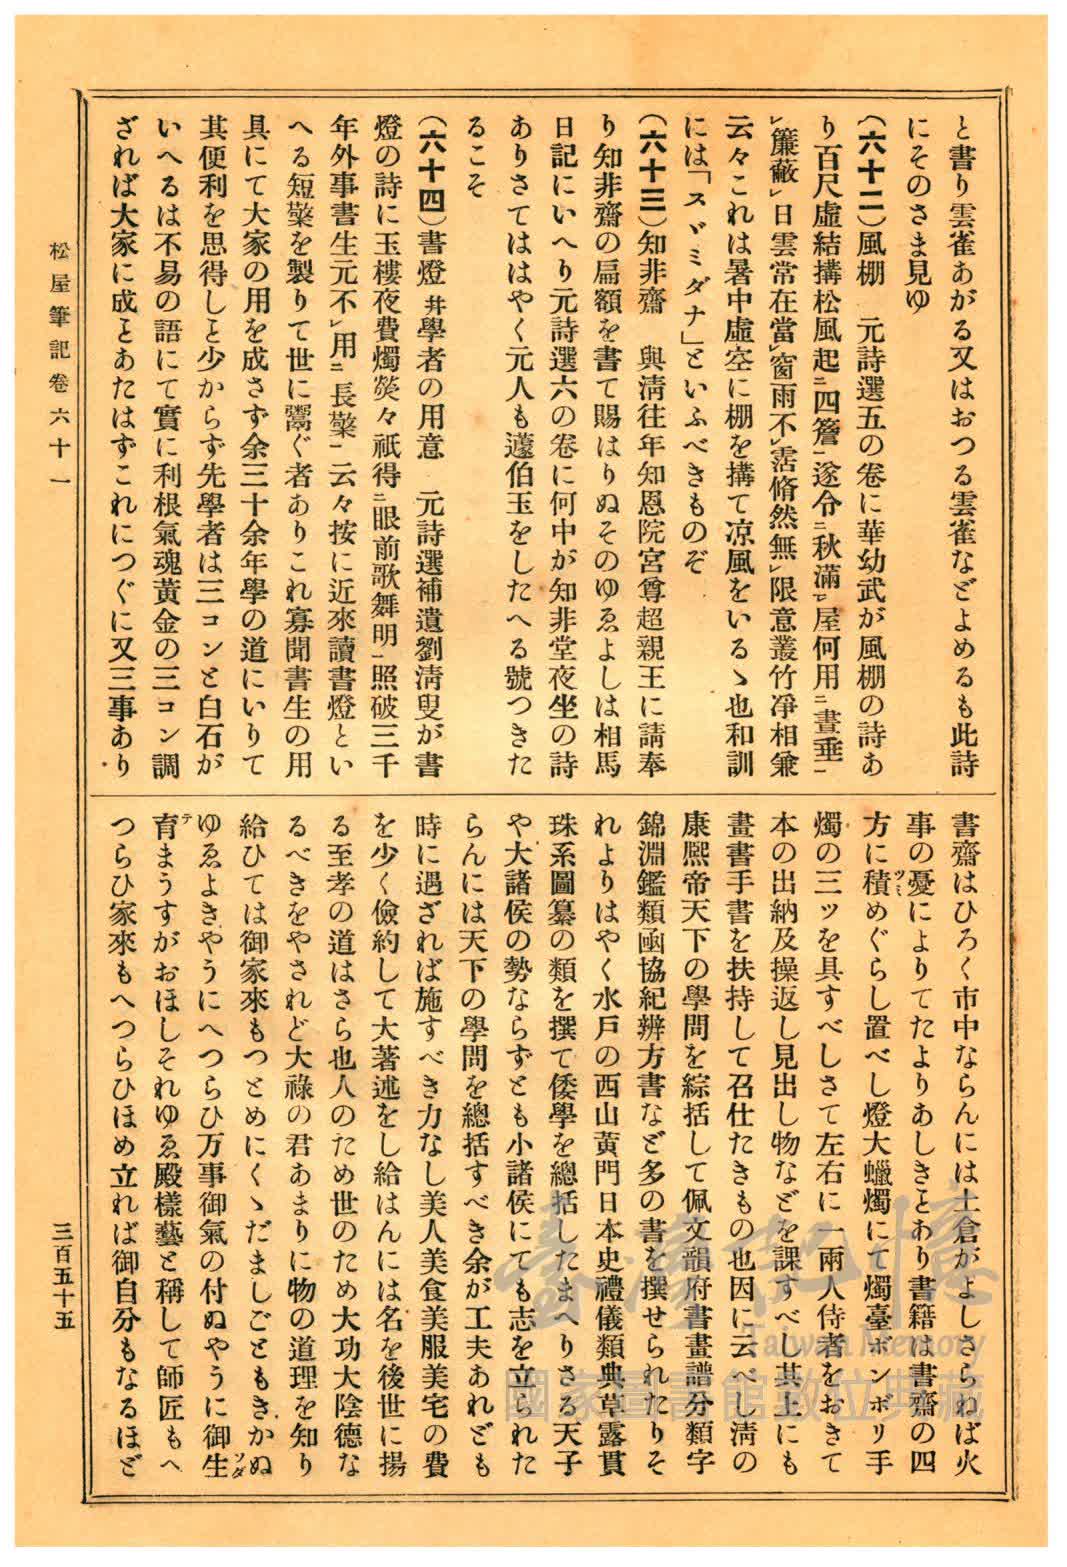 と書り雲雀あがる又はおつる雲雀などよめるも此詩
にそのさま見ゆ
(六十二)風棚　元詩選五の卷に華幼武が風棚の詩あ
り百尺虛結搆松風起ニ四簷一遂令ニ秋滿レ屋何用ニ晝垂一
レ簾蔽レ日雲常在當レ窗雨不レ霑翛然無レ限意叢竹淨相兼
云々これは暑中虛空に棚を搆て凉風をいるゝ也和訓
には「スヾミダナ」といふべきものぞ
(六十三)知非齋　與淸往年知恩院宮尊超親王に請奉
り知非齋の扁額を書て賜はりぬそのゆゑよしは相馬
日記にいへり元詩選六の卷に何中が知非堂夜坐の詩
ありさてははやく元人も蘧伯玉をしたへる號つきた
るこそ
(六十四)書燈幷學者の用意　元詩選補遺劉淸叟が書
燈の詩に玉樓夜費燭熒々祇得ニ眼前歌舞明一照破三千
年外事書生元不レ用ニ長檠一云々按に近來讀書燈とい
へる短檠を製りて世に鬻ぐ者ありこれ寡聞書生の用
具にて大家の用を成さず余三十余年學の道にいりて
其便利を思得しヿ少からず先學者は三コンと白石が
いへるは不易の語にて實に利根氣魂黃金の三コン調
ざれば大家に成ヿあたはずこれにつぐに又三事あり
書齋はひろく市中ならんには土倉がよしさらねば火
事の憂によりてたよりあしきヿあり書籍は書齋の四
方に積ツミめぐらし置べし燈大蠟燭にて燭臺ボンボリ手
燭の三ッを具すべしさて左右に一兩人侍者をおきて
本の出納及操返し見出し物などを課すべし其上にも
畫書手書を扶持して召仕たきもの也因に云べし淸の
康熙帝天下の學問を綜括して佩文韻府書畫譜分類字
錦淵鑑類函協紀辨方書など多の書を撰せられたりそ
れよりはやく水戶の西山黃門日本史禮儀類典草露貫
珠系圖纂の類を撰て倭學を總括したまへりさる天子
や大諸侯の勢ならずとも小諸侯にても志を立られた
らんには天下の學問を總括すべき余が工夫あれども
時に遇ざれば施すべき力なし美人美食美服美宅の費
を少く儉約して大著述をし給はんには名を後世に揚
る至孝の道はさら也人のため世のため大功大陰德な
るべきをやされど大祿の君あまりに物の道理を知り
給ひては御家來もつとめにくゝだましごともきかぬ
ゆゑよきやうにへつらひ万事御氣の付ぬやうに御生ソダ
育テまうすがおほしそれゆゑ殿樣藝と稱して師匠もへ
つらひ家來もへつらひほめ立れば御自分もなるほど
松屋筆記卷六十一
三百五十五
臺灣記憶
Taiwan Memory
國家圖書館數位典藏